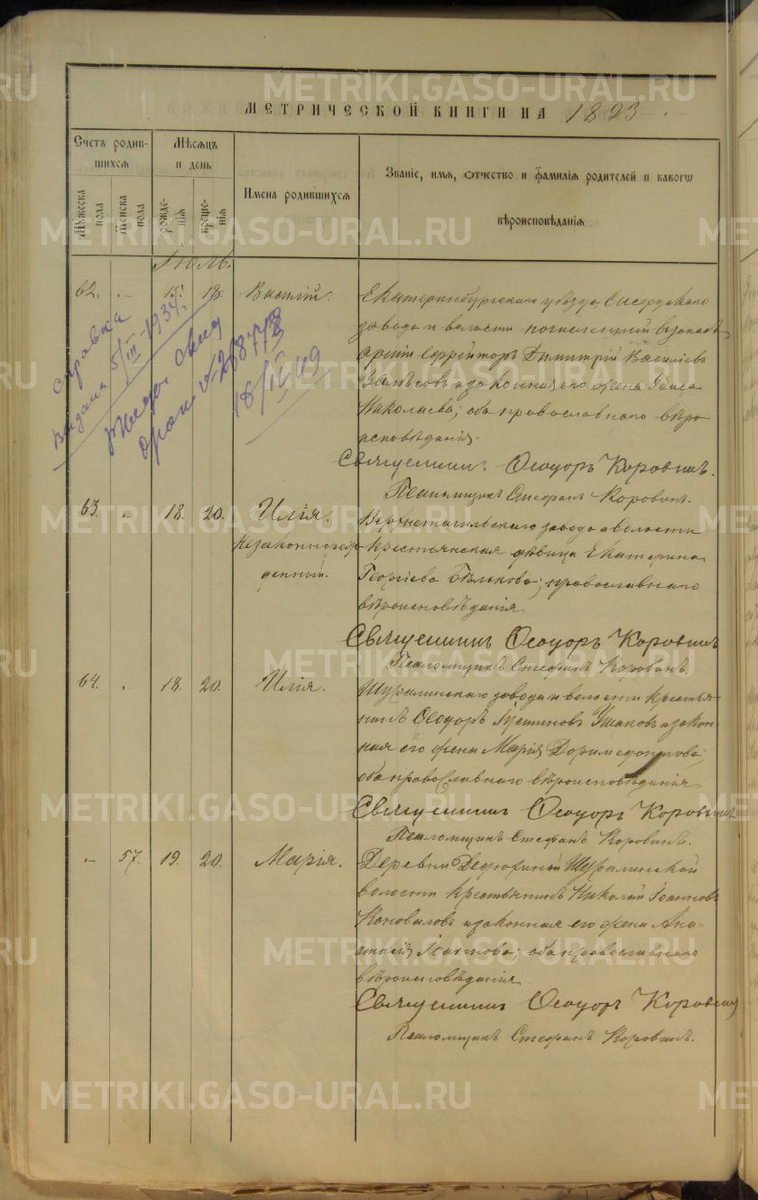 МЕТРИЧЕСКОЙ КНИГИ НА 1893
Счетъ родив-
шихся
Мѣсяцъ
и день
Имена родившихся
Званіе, имя, отчество и фамилія родителей и какогѡ
вѣроисповѣданія
Мꙋжеска пола
Женска пола
рожде-
нія
креще-
нія
Іюль.
62. 15. 18. Василій.
Екатеринбургскаго уѣзда, Сысертскаго
завода и волости
ефрейторъ Димитрій Василіевъ
и законная его жена
Николаева; оба православнаго вѣро
исповѣданія.
Священникъ Ѳеодоръ Коровинъ.
Псаломщикъ Стефанъ Коровинъ.
справка
выдана 5/III-1934 г.
№ 28778
18/IV 49
63. 18. 20. Илія.
незаконнорож-
денный.
Верхнетагильскаго завода и волости
крестьянская дѣвица Екатерина
Георгіева православнаго
вѣроисповѣданія
Священникъ Ѳеодоръ Коровинъ
Псаломщикъ Стефанъ Коровинъ.
64. 18. 20. Илія.
Шуралинскаго завода и волости крестья-
нинъ Ѳеодоръ Іустиновъ Ушаковъ и закон-
ная его жена Марія Доримедонтова;
оба православнаго вѣроисповѣданія
Священникъ Ѳеодоръ Коровинъ
Псаломщикъ Стефанъ Коровинъ.
57. 19. 20. Марія.
Деревни Шуралинской
волости крестьянинъ Николай Іоанновъ
Коноваловъ и законная его жена Ана-
стасія оба православнаго
вѣроисповѣданія
Священникъ Ѳеодоръ Коровинъ
Псаломщикъ Стефанъ Коровинъ.
METRIKI.GASO-URAL.RU